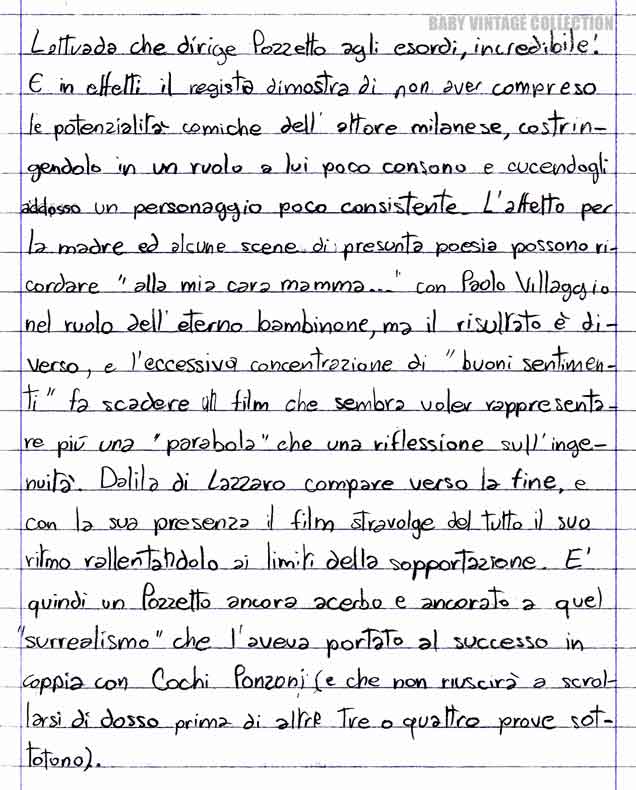 BABY VINTAGE COLLECTION
Lattuada che dirige Pozzetto agli esordi, incredibile!
E in effetti il regista dimostra di non aver compreso
le potenzialità comiche dell'attore milanese, costrin-
gendolo in un ruolo a lui poco consono e cucendogli
addosso un personaggio poco consistente. L'affetto per
la madre ed alcune scene di presunta poesia possono ri-
cordare "alla mia cara mamma..." con Paolo Villaggio
nel ruolo dell'eterno bambinone, ma il risultato è di-
verso, e l'eccessiva concentrazione di "buoni sentimen-
ti" fa scadere un film che sembra voler rappresenta-
re più una "parabola" che una riflessione sull'inge-
nuità. Dalila di Lazzaro compare verso la fine, e
con la sua presenza il film stravolge del tutto il suo
ritmo rallentandolo ai limiti della sopportazione. E'
quindi un Pozzetto ancora acerbo e ancorato a quel
"surrealismo" che l'aveva portato al successo in
coppia con Cochi Ponzoni (e che non riuscirà a scrol-
larsi di dosso prima di altre tre o quattro prove sot-
totono).